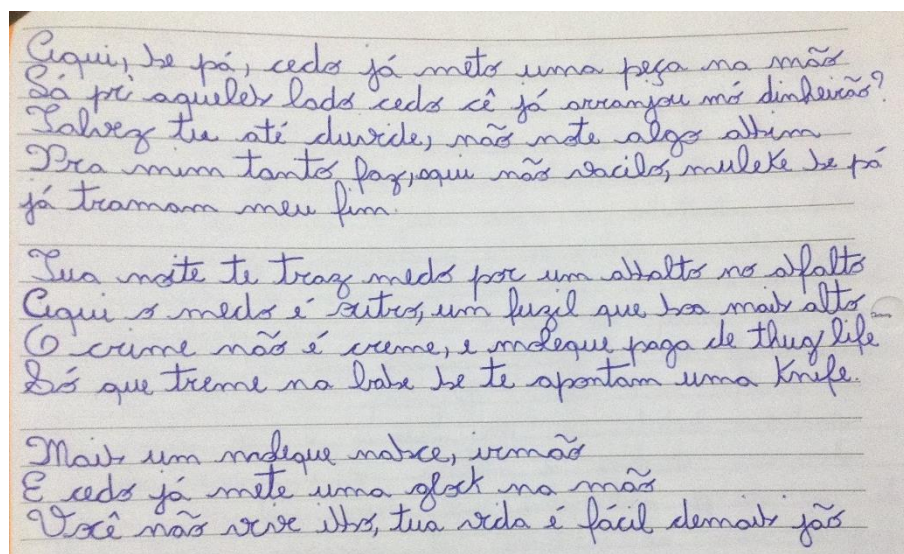 Aqui, se pá, cedo já meto uma peça na mão
Só pri aqueles lado cedo cê já arranjou mó dinheirão?
Talvez tu até duvide, não note algo assim
Pra mim tanto faz, aqui não vacilo, muleke se pá
já tramam meu fim.
Tua noite te traz medo por um assalto no asfalto
Aqui o medo é outro, um fuzil que soa mais alto
O crime não é creme, e moleque paga de thug life
Só que treme na base se te apontam uma Knife.
Mais um moleque nasce, irmão
E cedo já mete uma glock na mão
Você não vive isso, tua vida é fácil demais jão